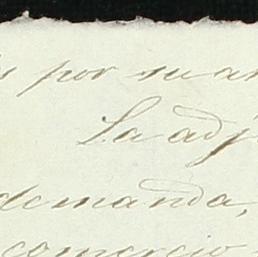 por su
La adj
demanda,
comercio